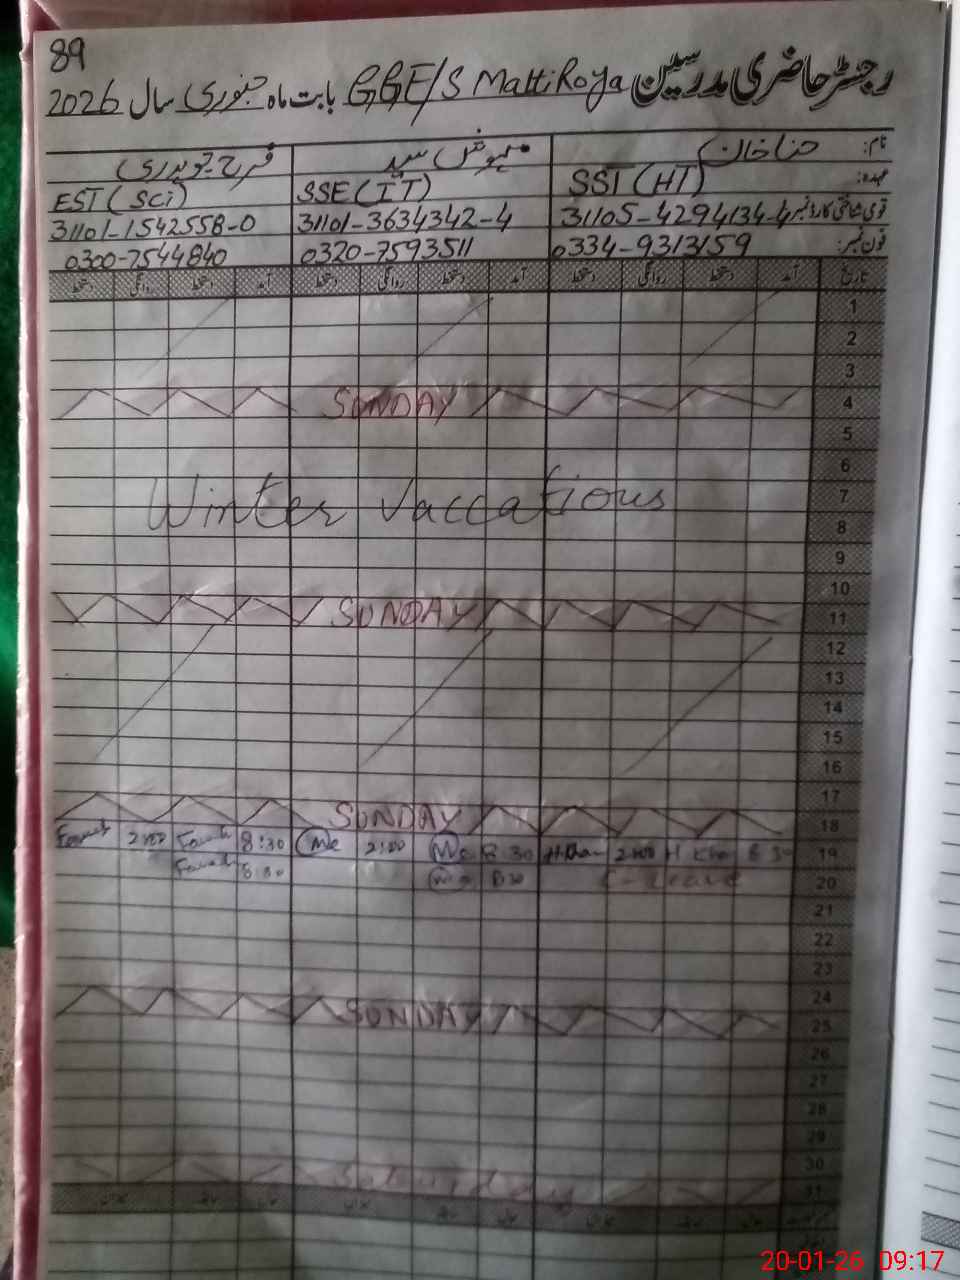 89
رجسٹر حاضری مدرسین GGE/S Matti Roya بابت ماہ جنوری سال 2026
نام: حنا خان مہوش سید فرح چوہدری
عہدہ: SST (HT) SSE (IT) EST (Sci)
قومی شناختی کارڈ نمبر 31105-4294134-4 31101-3634342-4 31101-1542558-0
فون نمبر: 0334-9313159 0320-7593511 0300-7544840
تاریخ آمد دستخط روانگی دستخط آمد دستخط روانگی دستخط آمد دستخط روانگی دستخط
1
2
3
4 SUNDAY
5
6
7 Winter Vaccations
8
9
10
11 SUNDAY
12
13
14
15
16
17
18 SUNDAY
19 8:30 H Khan 2:00 H.Khan 8:30 2:00 8:30 Farah 2:00 Farah
20 C-Leave 8:30 8:30 Farah
21
22
23
24
25 SUNDAY
26
27
28
29
30
31 Saturday
20-01-26 09:17